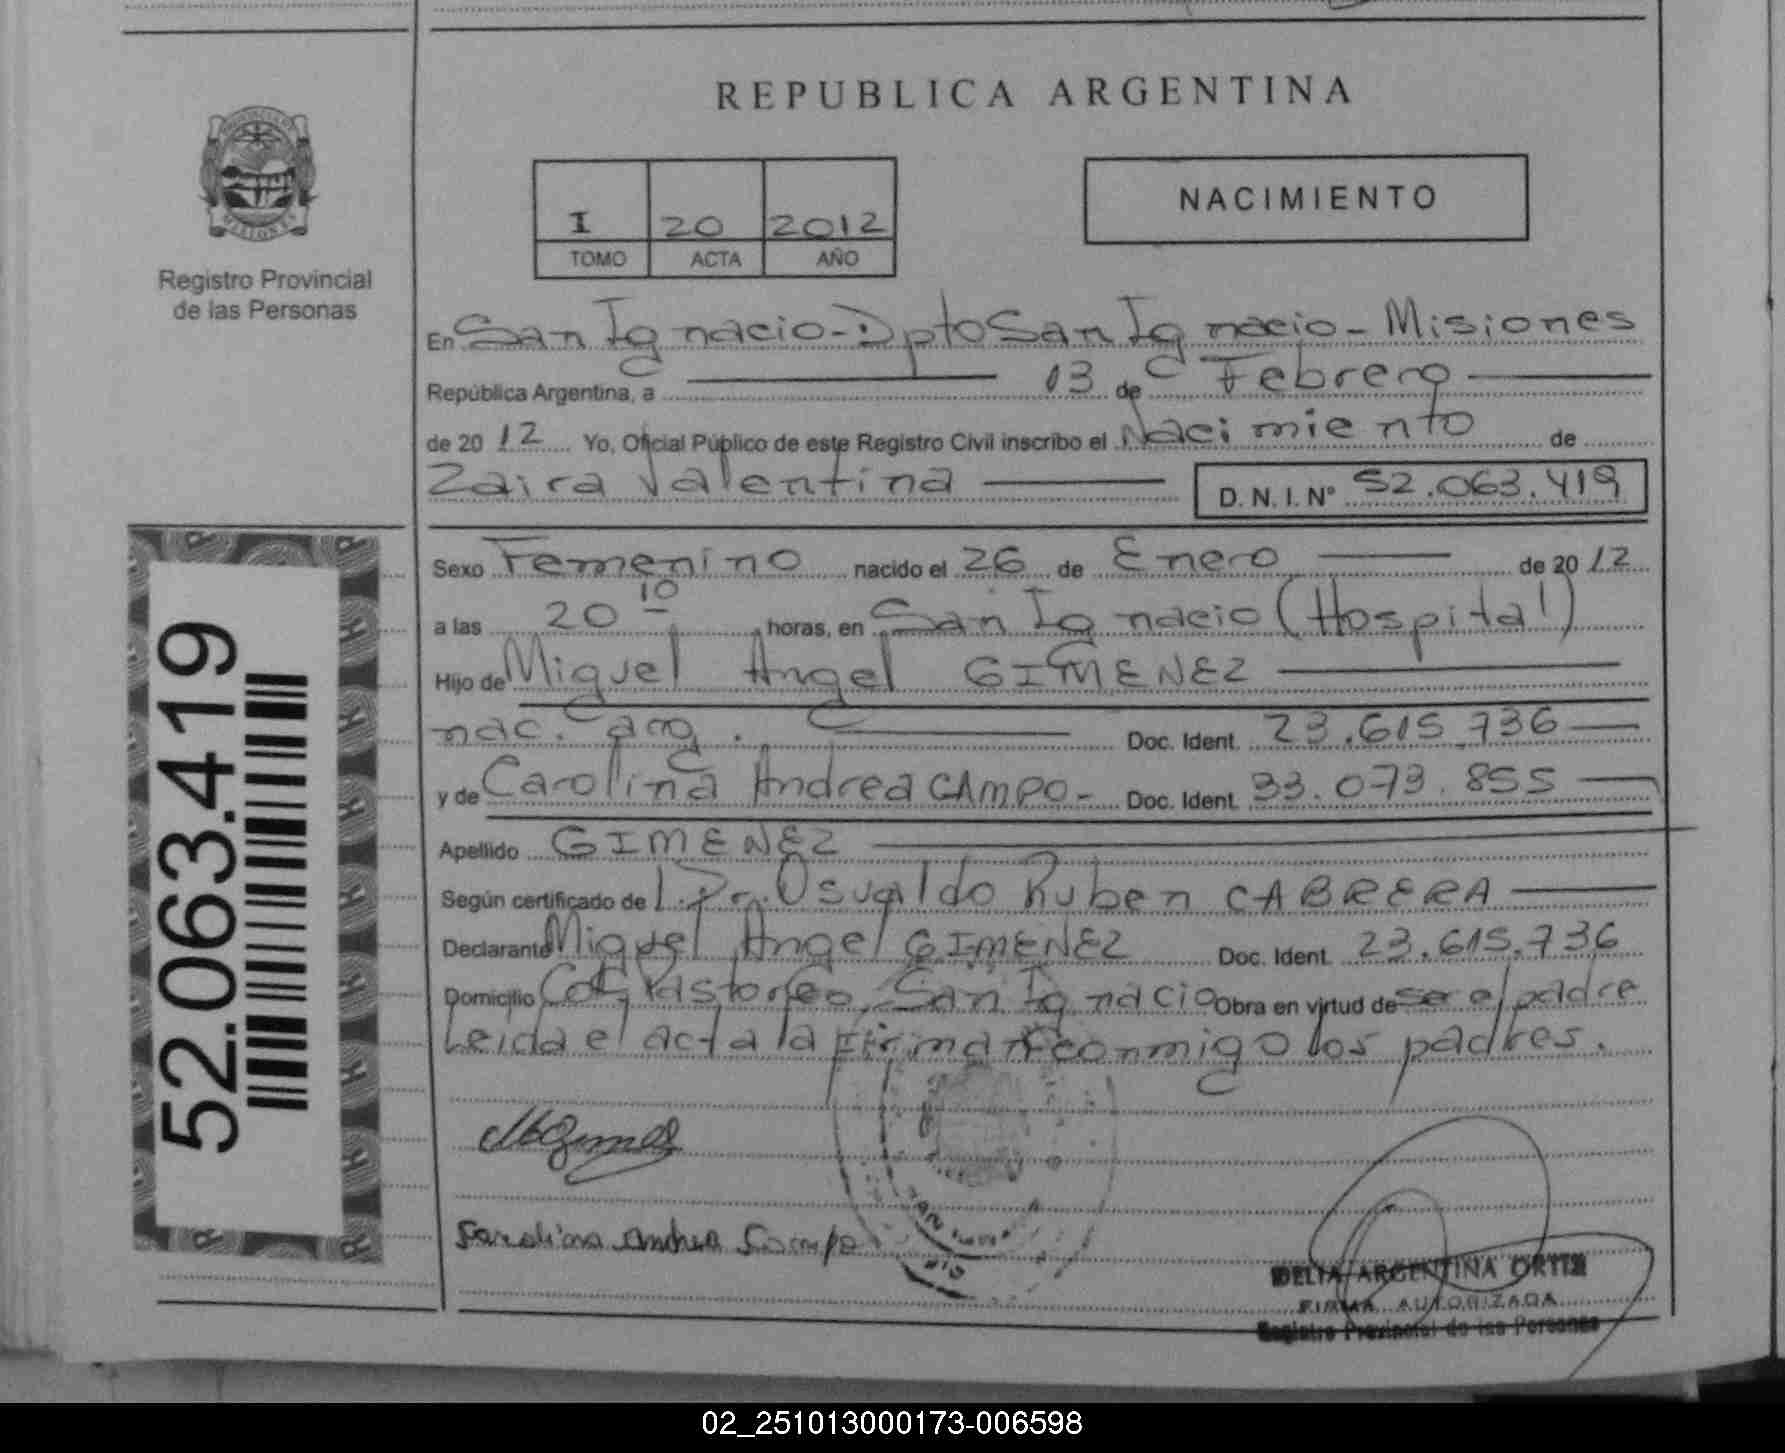 REPUBLICA ARGENTINA
PROVINCIA DE
MISIONES
Registro Provincial
de las Personas
I 20 2012
TOMO ACTA AÑO
NACIMIENTO
En San Ignacio - Dpto San Ignacio - Misiones
República Argentina, a 13 de Febrero
de 2012 Yo, Oficial Público de este Registro Civil inscribo el Nacimiento de
Zaira Valentina D.N.I. Nº 52.063.419
Sexo Femenino nacido el 26 de Enero de 2012
a las 20 10 horas, en San Ignacio (Hospital)
Hijo de Miguel Angel GIMENEZ
nac. arg. Doc. Ident. 23.615.736
y de Carolina Andrea CAMPO - Doc. Ident. 33.073.855
Apellido GIMENEZ
Según certificado de Dr. Osvaldo Ruben CABRERA
Declarante Miguel Angel GIMENEZ Doc. Ident. 23.615.736
Domicilio Pastoreo, San Ignacio Obra en virtud de ser el padre
Leida el acta la Firman conmigo los padres.
52.063.419
Carolina Andrea Campo
DELIA ARGENTINA ORTIZ
FIRMA AUTORIZADA
Registro Provincial de las Personas
02_251013000173-006598